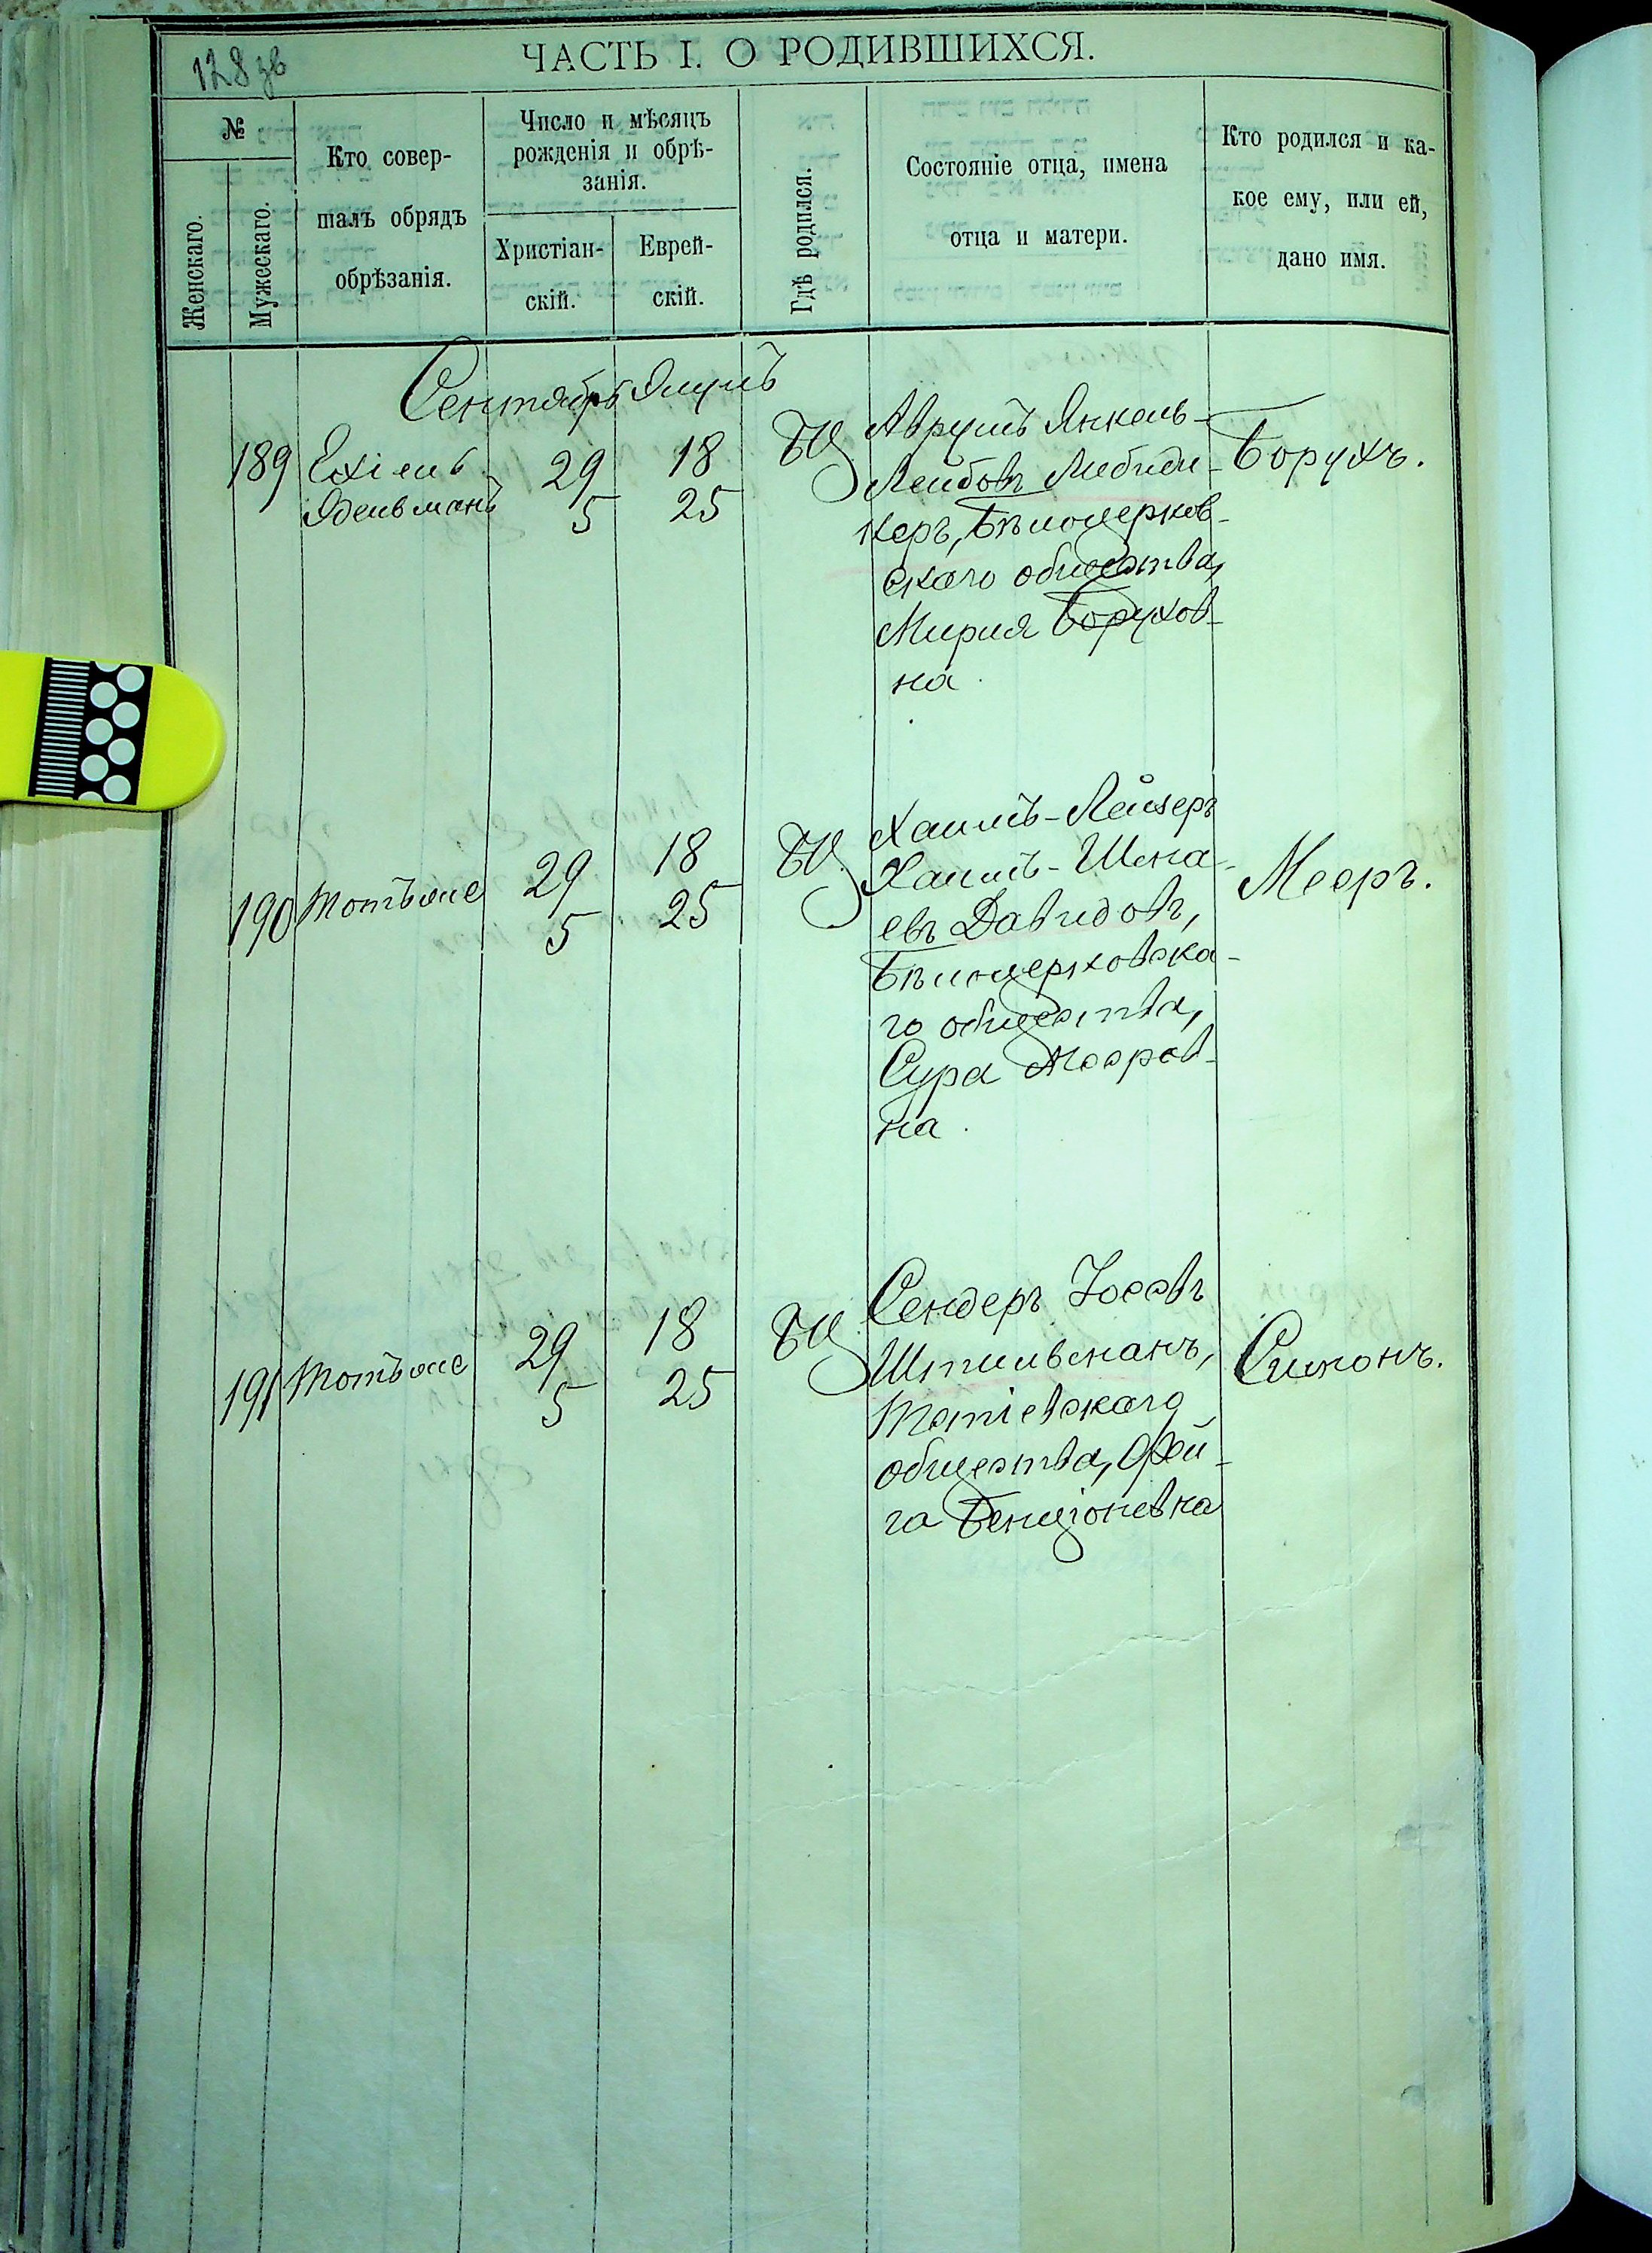 128 зв
ЧАСТЬ I. О РОДИВШИХСЯ.
№
Женскаго.
Мужескаго.
Кто совер-
шалъ обрядъ
обрѣзанія.
Число и мѣсяцъ
рожденія и обрѣ-
занія.
Христіан-
скій.
Еврей-
скій.
Гдѣ родился.
Состояніе отца, имена
отца и матери.
Кто родился и ка-
кое ему, или ей,
дано имя.
Сентябрь
189
Ехіель
29
5
18
25
БЦ
Аврумъ Янкель-
Лейбовъ Лебиди-
керъ, Бѣлоцерков-
скаго общества,
Мирия Борухов-
на.
Борухъ.
190
Тотъ же
29
5
18
25
БЦ
Хаимъ-Лейзеръ
Хаимъ-Шма-
евъ Давидовъ,
Бѣлоцерковска-
го общества,
Сура Мееров-
на.
Мееръ.
191
Тотъ же
29
5
18
25
БЦ
Сендеръ Іосевъ
Штильманъ,
общества, Фей-
га Бенціоневна
Симонъ.